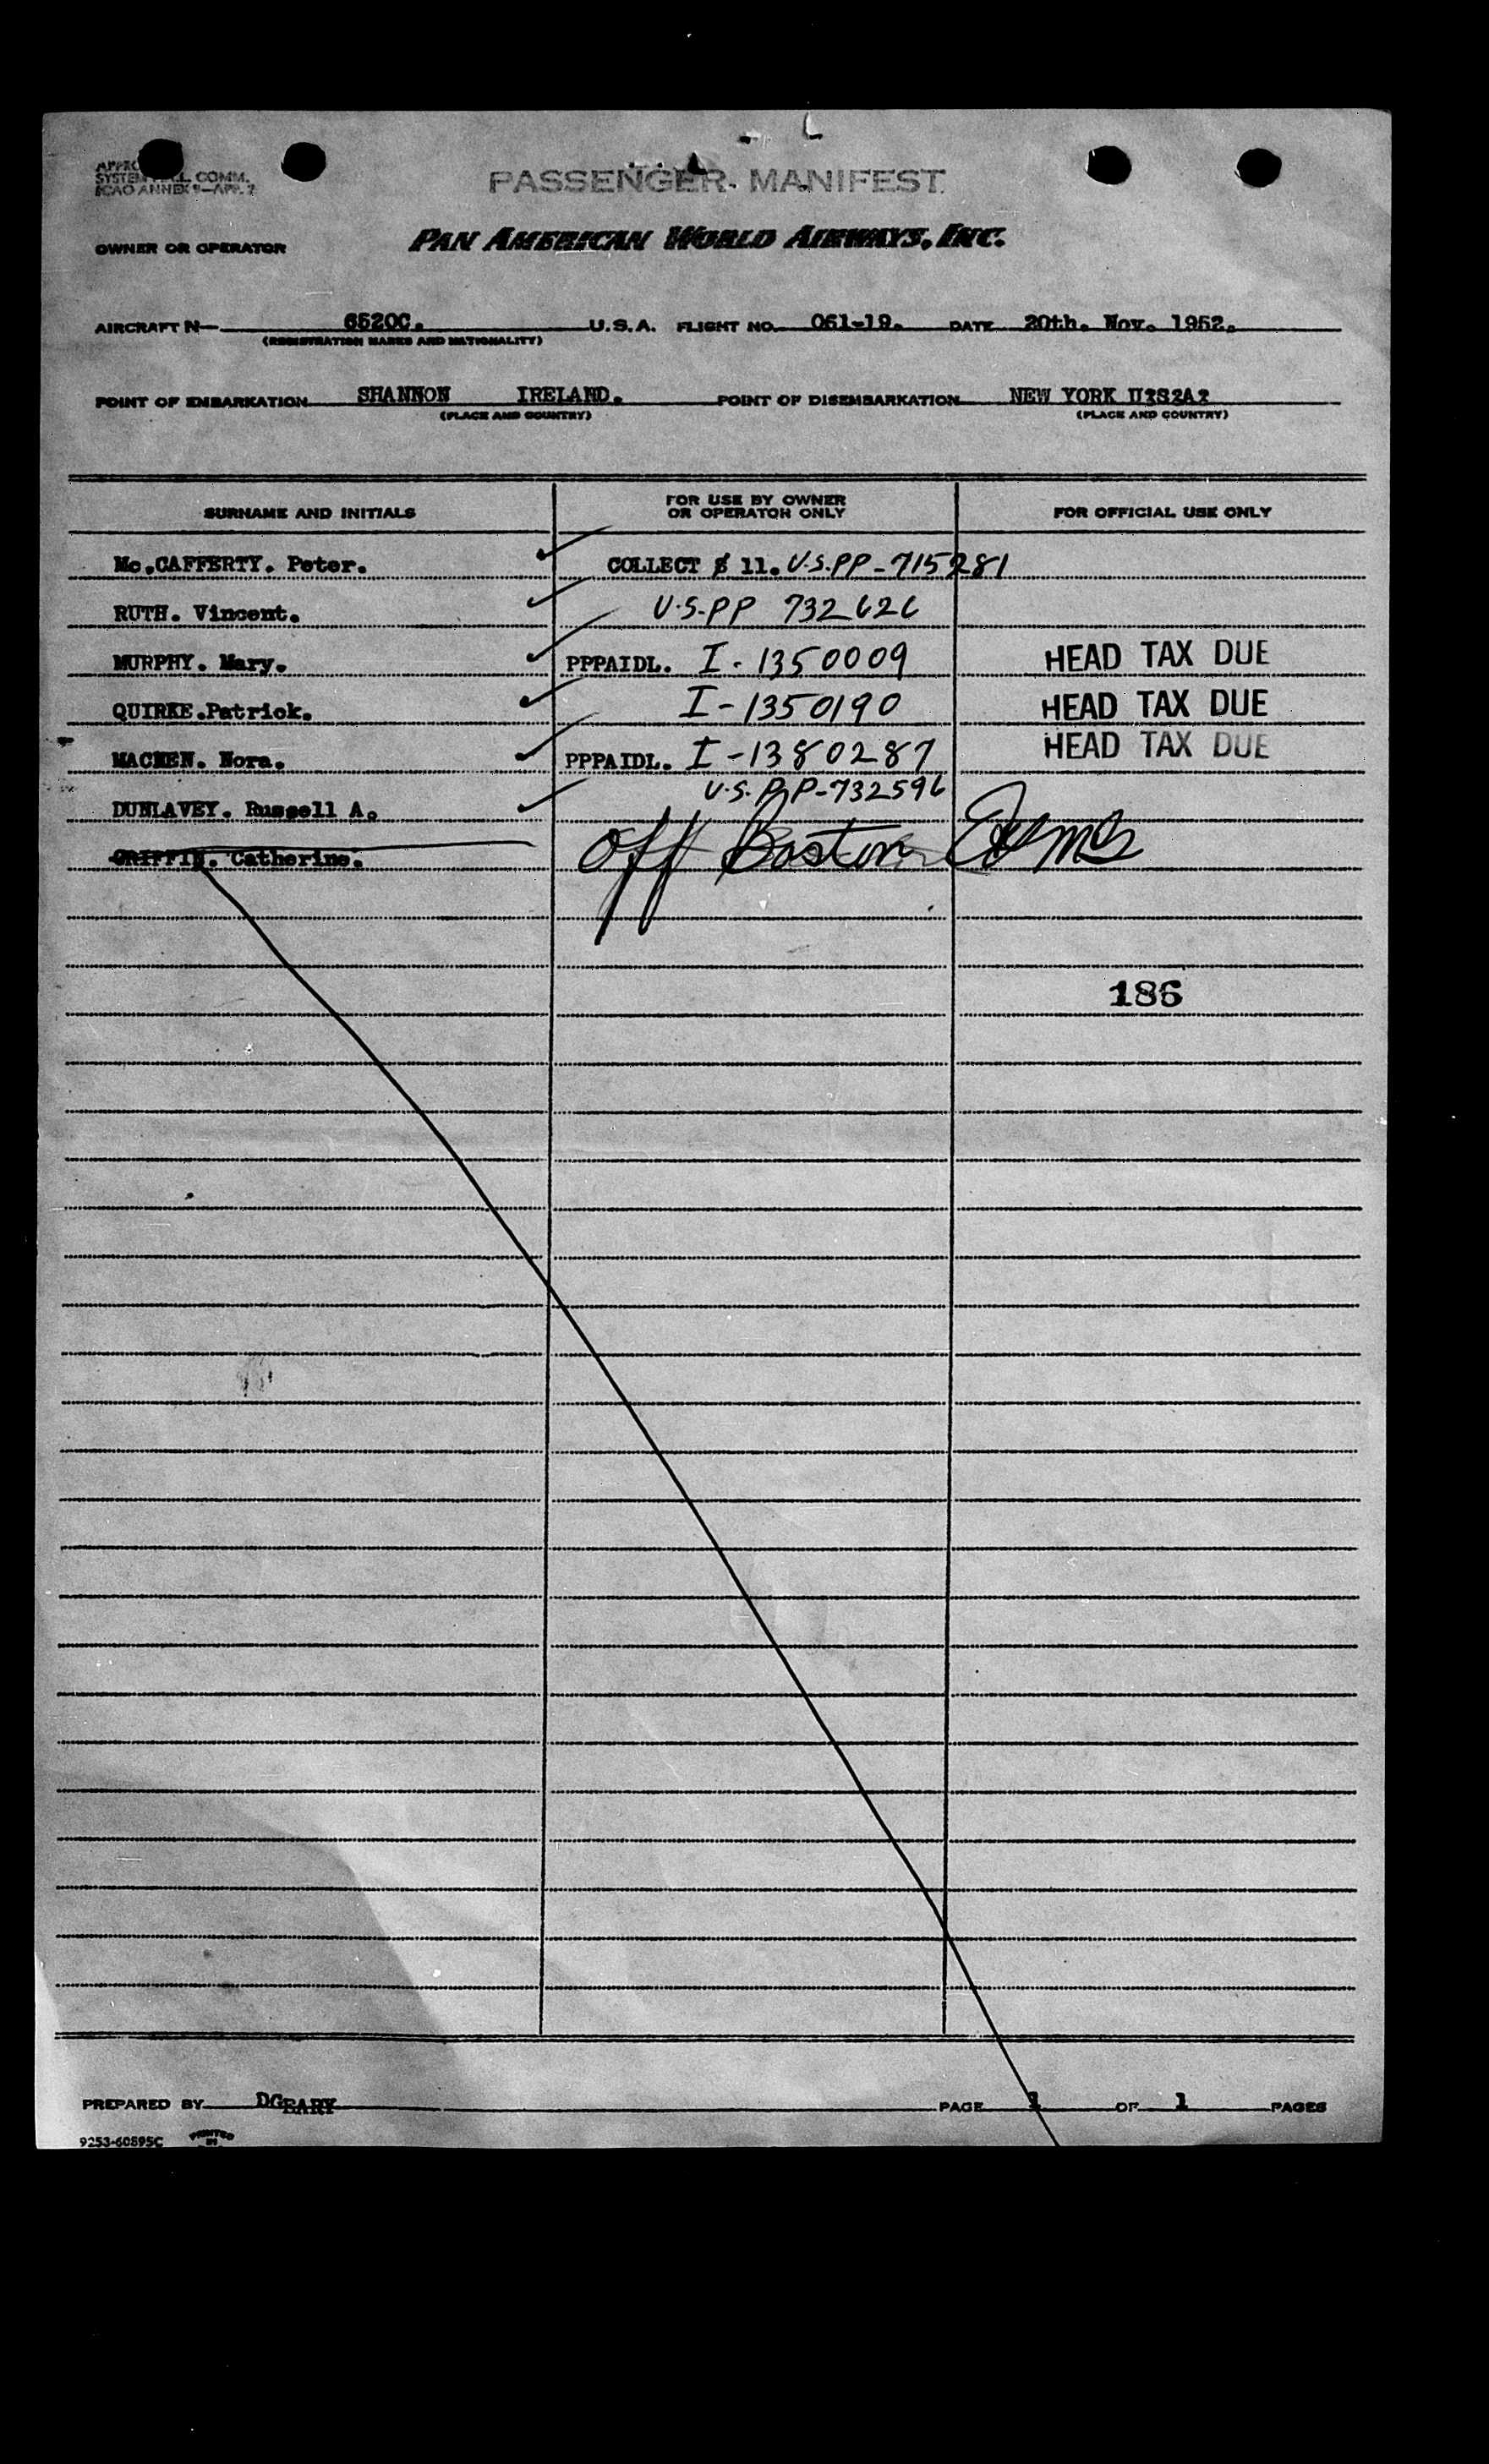 SYSTEM COMM.
ICAO ANNEX 9—APP. 2
PASSENGER MANIFEST
OWNER OR OPERATOR PAN AMERICAN WORLD AIRWAYS, INC.
AIRCRAFT N— 6520C. U.S.A. FLIGHT NO. 051-19. DATE 20th. Nov. 1952.
(REGISTRATION MARKS AND NATIONALITY)
POINT OF EMBARKATION SHANNON IRELAND. POINT OF DISEMBARKATION NEW YORK U?S?A?
(PLACE AND COUNTRY) (PLACE AND COUNTRY)
SURNAME AND INITIALS FOR USE BY OWNER OR OPERATOR ONLY FOR OFFICIAL USE ONLY
Mc.CAFFERTY. Peter. COLLECT $ 11. U.S.PP-715281
RUTH. Vincent. U.S.PP 732626
MURPHY. Mary. PPPAIDL. I-1350009 HEAD TAX DUE
QUIRKE.Patrick. I-1350190 HEAD TAX DUE
MACKEN. Nora. PPPAIDL. I-1380287 HEAD TAX DUE
DUNLAVEY. Russell A. U.S.PP-732596
GRIFFIN. Catherine. Off Boston
186
PREPARED BY DGEARY PAGE 1 OF 1 PAGES
9253-60895C PRINTED IN